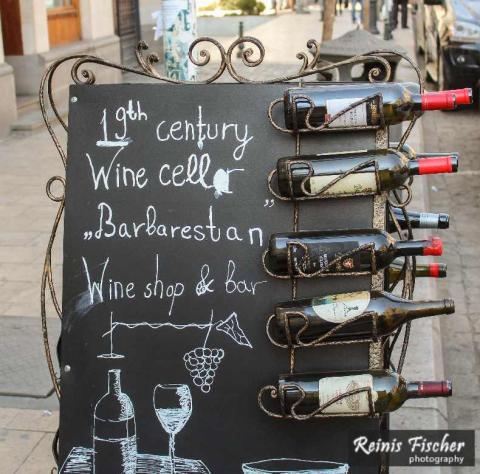 19th century
Wine cellar
„Barbarestan”
Wine shop & bar
Reinis Fischer
photography